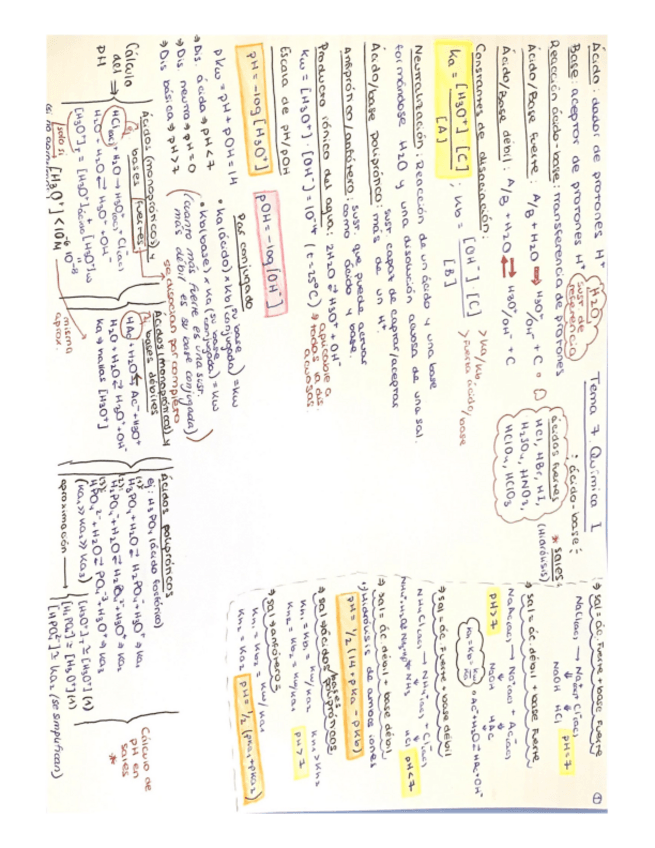 Tema 7. Química I
: ácido-base :
Ácido: dador de protones H⁺
Base: aceptor de protones H⁺
Reacción ácido-base: transferencia de protones
H₂O
sust de referencia
Ácido/Base fuerte: A/B + H₂O → H₃O⁺/OH⁻ + C
Ácido/Base débil: A/B + H₂O ⇌ H₃O⁺/OH⁻ + C
ácidos fuertes
HCl, HBr, HI,
H₂SO₄, HNO₃,
HClO₄, HClO₃
Constantes de disociación:
Ka = [H₃O⁺][C] / [A] ; Kb = [OH⁻][C] / [B]
> Ka/Kb
> fuerza ácido/base
Neutralización: Reacción de un ácido y una base
formándose H₂O y una disolución acuosa de una sal.
Ácido/base poliprótico: sust capaz de captar/aceptar
más de un H⁺.
Anfiprótico/anfótero: sust. que puede actuar
como ácido y base.
Producto iónico del agua: 2H₂O ⇌ H₃O⁺ + OH⁻
Kw = [H₃O⁺]·[OH⁻] = 10⁻¹⁴ (t=25ºC) → aplicable a
todas la dis.
acuosas.
Escala de pH/pOH
pH = -log[H₃O⁺]
pOH = -log[OH⁻]
pKw = pH + pOH = 14
→ Dis. ácida → pH<7
→ Dis neutra → pH=0
→ Dis básica → pH>7
Par conjugado
• Ka(ácido) · Kb(su base conjugada) = Kw
• Kb(base) · Ka(su base conjugada) = Kw
(cuanto más fuerte es una sust.
más débil es su base conjugada)
Cálculo
del ⇒
pH
Ácidos (monopróticos) y
bases fuertes
se disocian por completo
HCl(ac) + H₂O → H₃O⁺(ac) + Cl⁻(ac)
H₂O + H₂O ⇌ H₃O⁺ + OH⁻
[H₃O⁺]T = [H₃O⁺]a + [H₃O⁺]w
solo si
[H₃O⁺] < 10⁻⁶ M
10⁻⁸
si no
misma
aprox.
Ácidos (monopróticos) y
bases débiles
HAc + H₂O ⇌ Ac⁻ + H₃O⁺
H₂O + H₂O ⇌ H₃O⁺ + OH⁻
Ka → hallas [H₃O⁺]
Ácidos polipróticos
ej: H₃PO₄ (ácido fosfórico)
(1): H₃PO₄ + H₂O ⇌ H₂PO₄⁻ + H₃O⁺ → Ka₁
(2): H₂PO₄⁻ + H₂O ⇌ HPO₄²⁻ + H₃O⁺ → Ka₂
(3): HPO₄²⁻ + H₂O ⇌ PO₄⁻³ + H₃O⁺ → Ka₃
(Ka₁ >> Ka₂ >> Ka₃)
aproximación →
[H₃O⁺]T ≅ [H₃O⁺](1)
[H₂PO₄⁻] ≅ [H₃O⁺](1)
[HPO₄²⁻] ≅ Ka₂ (se simplifican)
Cálculo de
pH en
sales
*
* sales
(Hidrólisis)
①
→ sal = ác. fuerte + base fuerte
NaCl(ac) → Na⁺(ac) + Cl⁻(ac)
NaOH HCl
pH=7
→ sal = ác débil + base fuerte
NaAc(ac) → Na⁺(ac) + Ac⁻(ac)
NaOH HAc
pH>7
Ac⁻ + H₂O ⇌ HAc + OH⁻
→ sal = ác fuerte + base débil
NH₄Cl(ac) → NH₄⁺(ac) + Cl⁻(ac)
pH<7
→ sal = ác débil + base débil
Hidrólisis de ambos iones
pH = 1/2 (14 + pKa - pKb)
→ sal → ácidos/bases polipróticos
Kh₁ = Kb₁ = Kw/Ka₂
Kh₂ = Kb₂ = Kw/Ka₁
Kh₁ > Kh₂
pH>7
→ sal → anfóteros
Kh₁ = Kb₂ = Kw/Ka₁
Kh₂ = Ka₂
pH = 1/2 (pKa₁ + pKa₂)